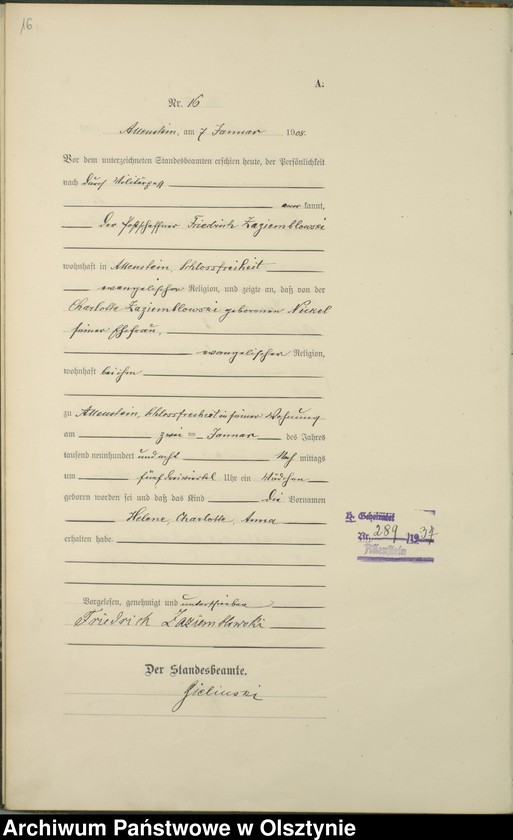 16
A.
Nr. 16
Allenstein, am 7 Januar 1908.
Vor dem unterzeichneten Standesbeamten erschien heute, der Persönlichkeit
nach durch Militärpaß
aner kannt,
der Postschaffner Friedrich Zaziemblowski
wohnhaft in Allenstein, Schlossfreiheit
evangelischer Religion, und zeigte an, daß von der
Charlotte Zaziemblowski geborenen Nickel
seiner Ehefrau,
evangelischer Religion,
wohnhaft bei ihm
zu Allenstein, Schlossfreiheit in seiner Wohnung
am zwei ten Januar des Jahres
tausend neunhundert und acht Nach mittags
um fünf dreiviertel Uhr ein Mädchen
geboren worden sei und daß das Kind die Vornamen
Helene, Charlotte, Anna
erhalten habe.
Nr. 289 /1937
Allenstein
Vorgelesen, genehmigt und unterschrieben
Friedrich Zaziemblowski
Der Standesbeamte.
Zielinski
Archiwum Państwowe w Olsztynie